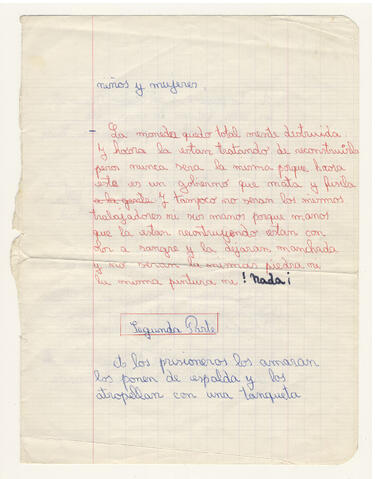 niños y mujeres
- La moneda quedo total mente destruida
Y haora la estan tratando de reconstruilla
pero nunca sera la misma porque haora
este es un gobierno que mata y fusila
a la gente Y tampoco no seran los mismos
trabajadores ni sus manos porque manos
que la estan recontruyendo estan con
olor a sangre y la dejaran manchada
y no seran la mismas piedra ni
la misma pintura ni ! Nada ¡
Segunda Parte
A los prisioneros los amaran
los ponen de espalda y los
atropellan con una tanqueta